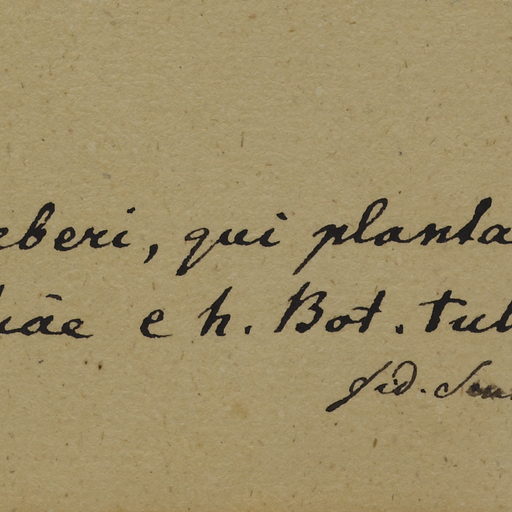 eberi, qui planta
iâe e h. Bot. tul
fid.